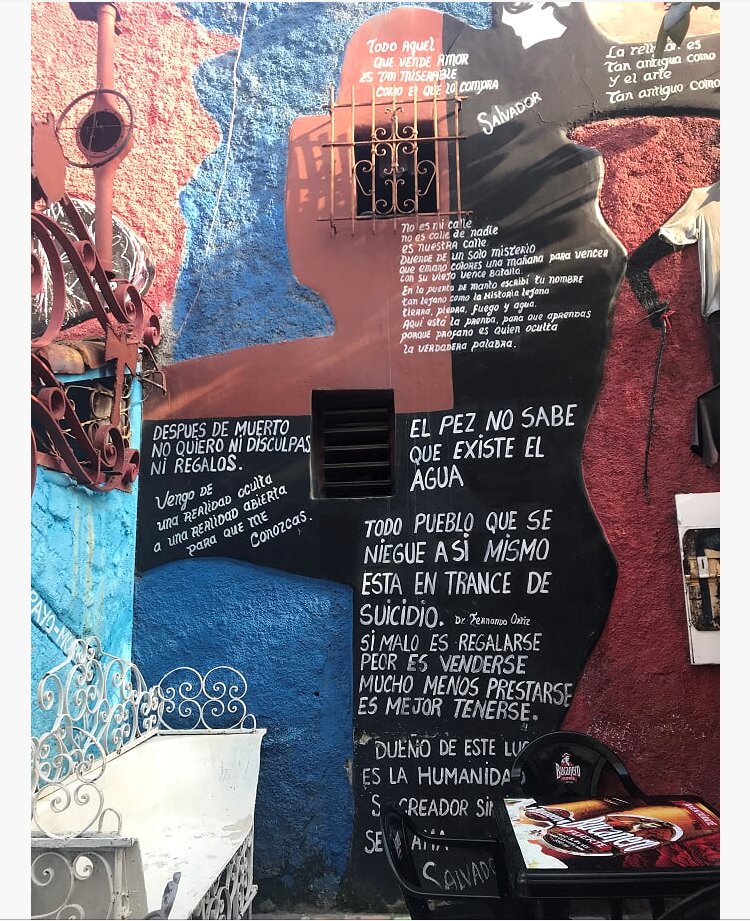 TODO AQUEL
QUE VENDE AMOR
ES TAN MISERABLE
COMO EL QUE LO COMPRA
SALVADOR
La religion es
Tan antigua como
y el arte
Tan antiguo como
No es mi calle
no es calle de nadie
es nuestra calle.
Duende de un solo misterio
que emano colores una mañana para vencer
con su viejo vence batalla.
En la puerta de manto escribí tu nombre
tan lejano como la Historia lejana
tierra, piedra, fuego y agua.
Aqui está la prenda, para que aprendas
porque profano es quien oculta
la verdadera palabra.
DESPUES DE MUERTO
NO QUIERO NI DISCULPAS
NI REGALOS.
Vengo DE
una REALIDAD oculta
a una REALIDAD abierta
PARA QUE ME
Conozcas.
EL PEZ NO SABE
QUE EXISTE EL
AGUA
TODO PUEBLO QUE SE
NIEGUE A SI MISMO
ESTA EN TRANCE DE
SUICIDIO. Dr. Fernando Ortiz
SI MALO ES REGALARSE
PEOR ES VENDERSE
MUCHO MENOS PRESTARSE
ES MEJOR TENERSE.
DUEÑO DE ESTE LUG
ES LA HUMANIDAD
S CREADOR SIN
SE AMA
SALVADO
RAYO-MO
Bucanero
Bucanero
FUERTE